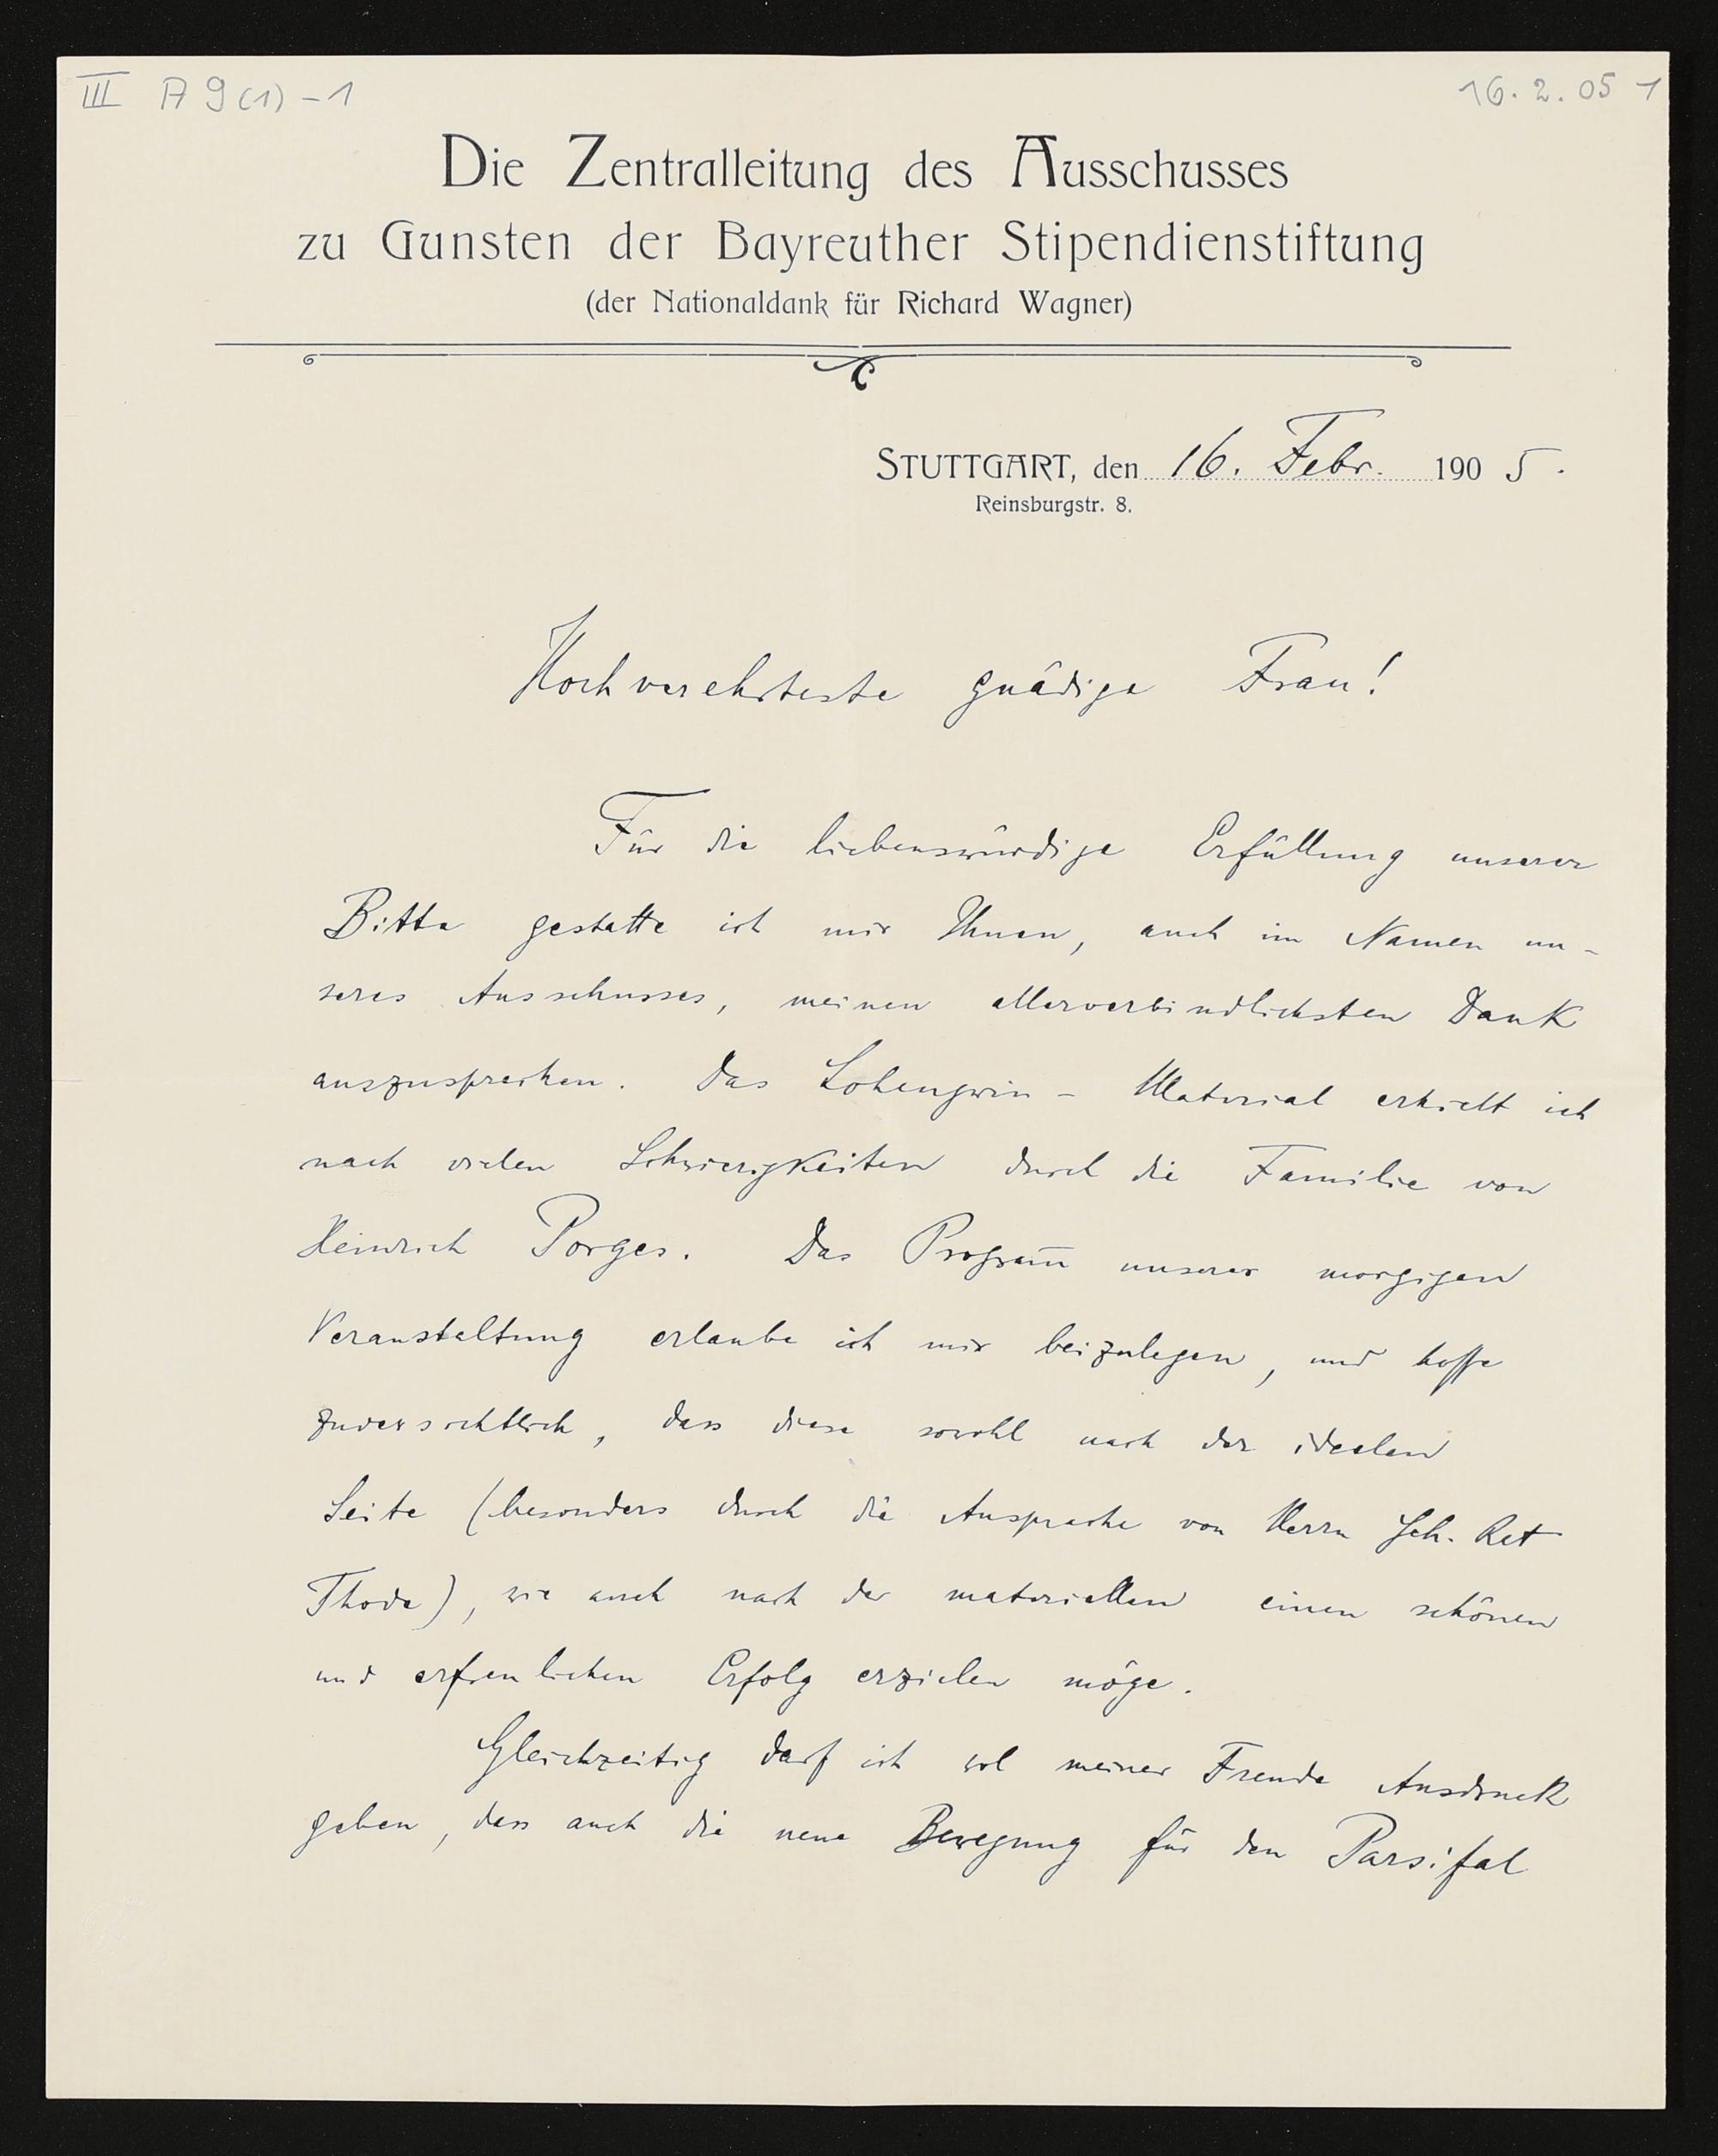 III A 9(1)-1
16.2.05 1
Die Zentralleitung des Ausschusses
zu Gunsten der Bayreuther Stipendienstiftung
(der Nationaldank für Richard Wagner)
STUTTGART, den 16. Febr. 1905.
Reinsburgstr. 8.
Hochverehrteste gnädige Frau!
Für die liebenswürdige Erfüllung unserer
Bitte gestatte ich mir Ihnen, auch im Namen un-
seres Ausschusses, meinen allerverbindlichsten Dank
auszusprechen. Das Lohengrin-Material erhielt ich
nach vielen Schwierigkeiten durch die Familie von
Heinrich Porges. Das Program̅ unserer morgigen
Veranstaltung erlaube ich mir beizulegen, und hoffe
zuversichtlich, dass diese sowohl nach der idealen
Seite (besonders durch die Ansprache von Herrn Geh. Rat
Thode), wie auch nach der materiellen einen schönen
und erfreulichen Erfolg erzielen möge.
Gleichzeitig darf ich wol meiner Freude Ausdruck
geben, dass auch die neue Bewegung für den Parsifal